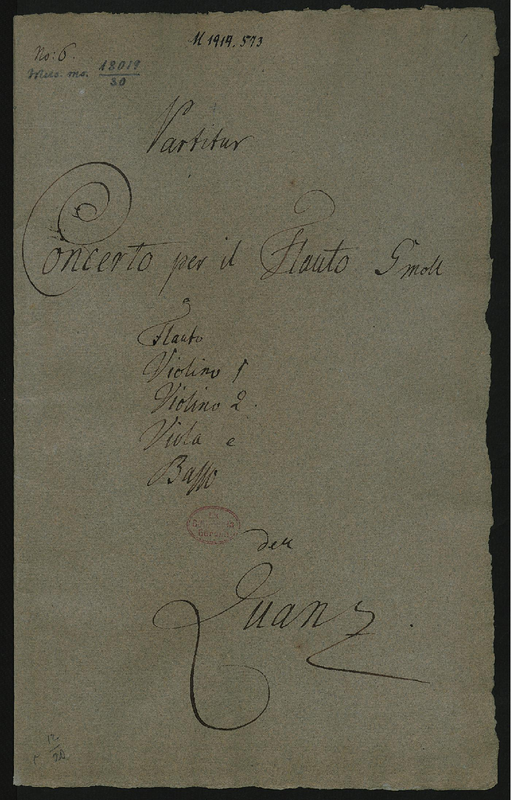 No: 6.
M 1914.573
Mus. ms. 18019/30
Partitur
Concerto per il Flauto G moll
a
Flauto
Violino 1
Violino 2.
Viola e
Basso
del
Quanz.